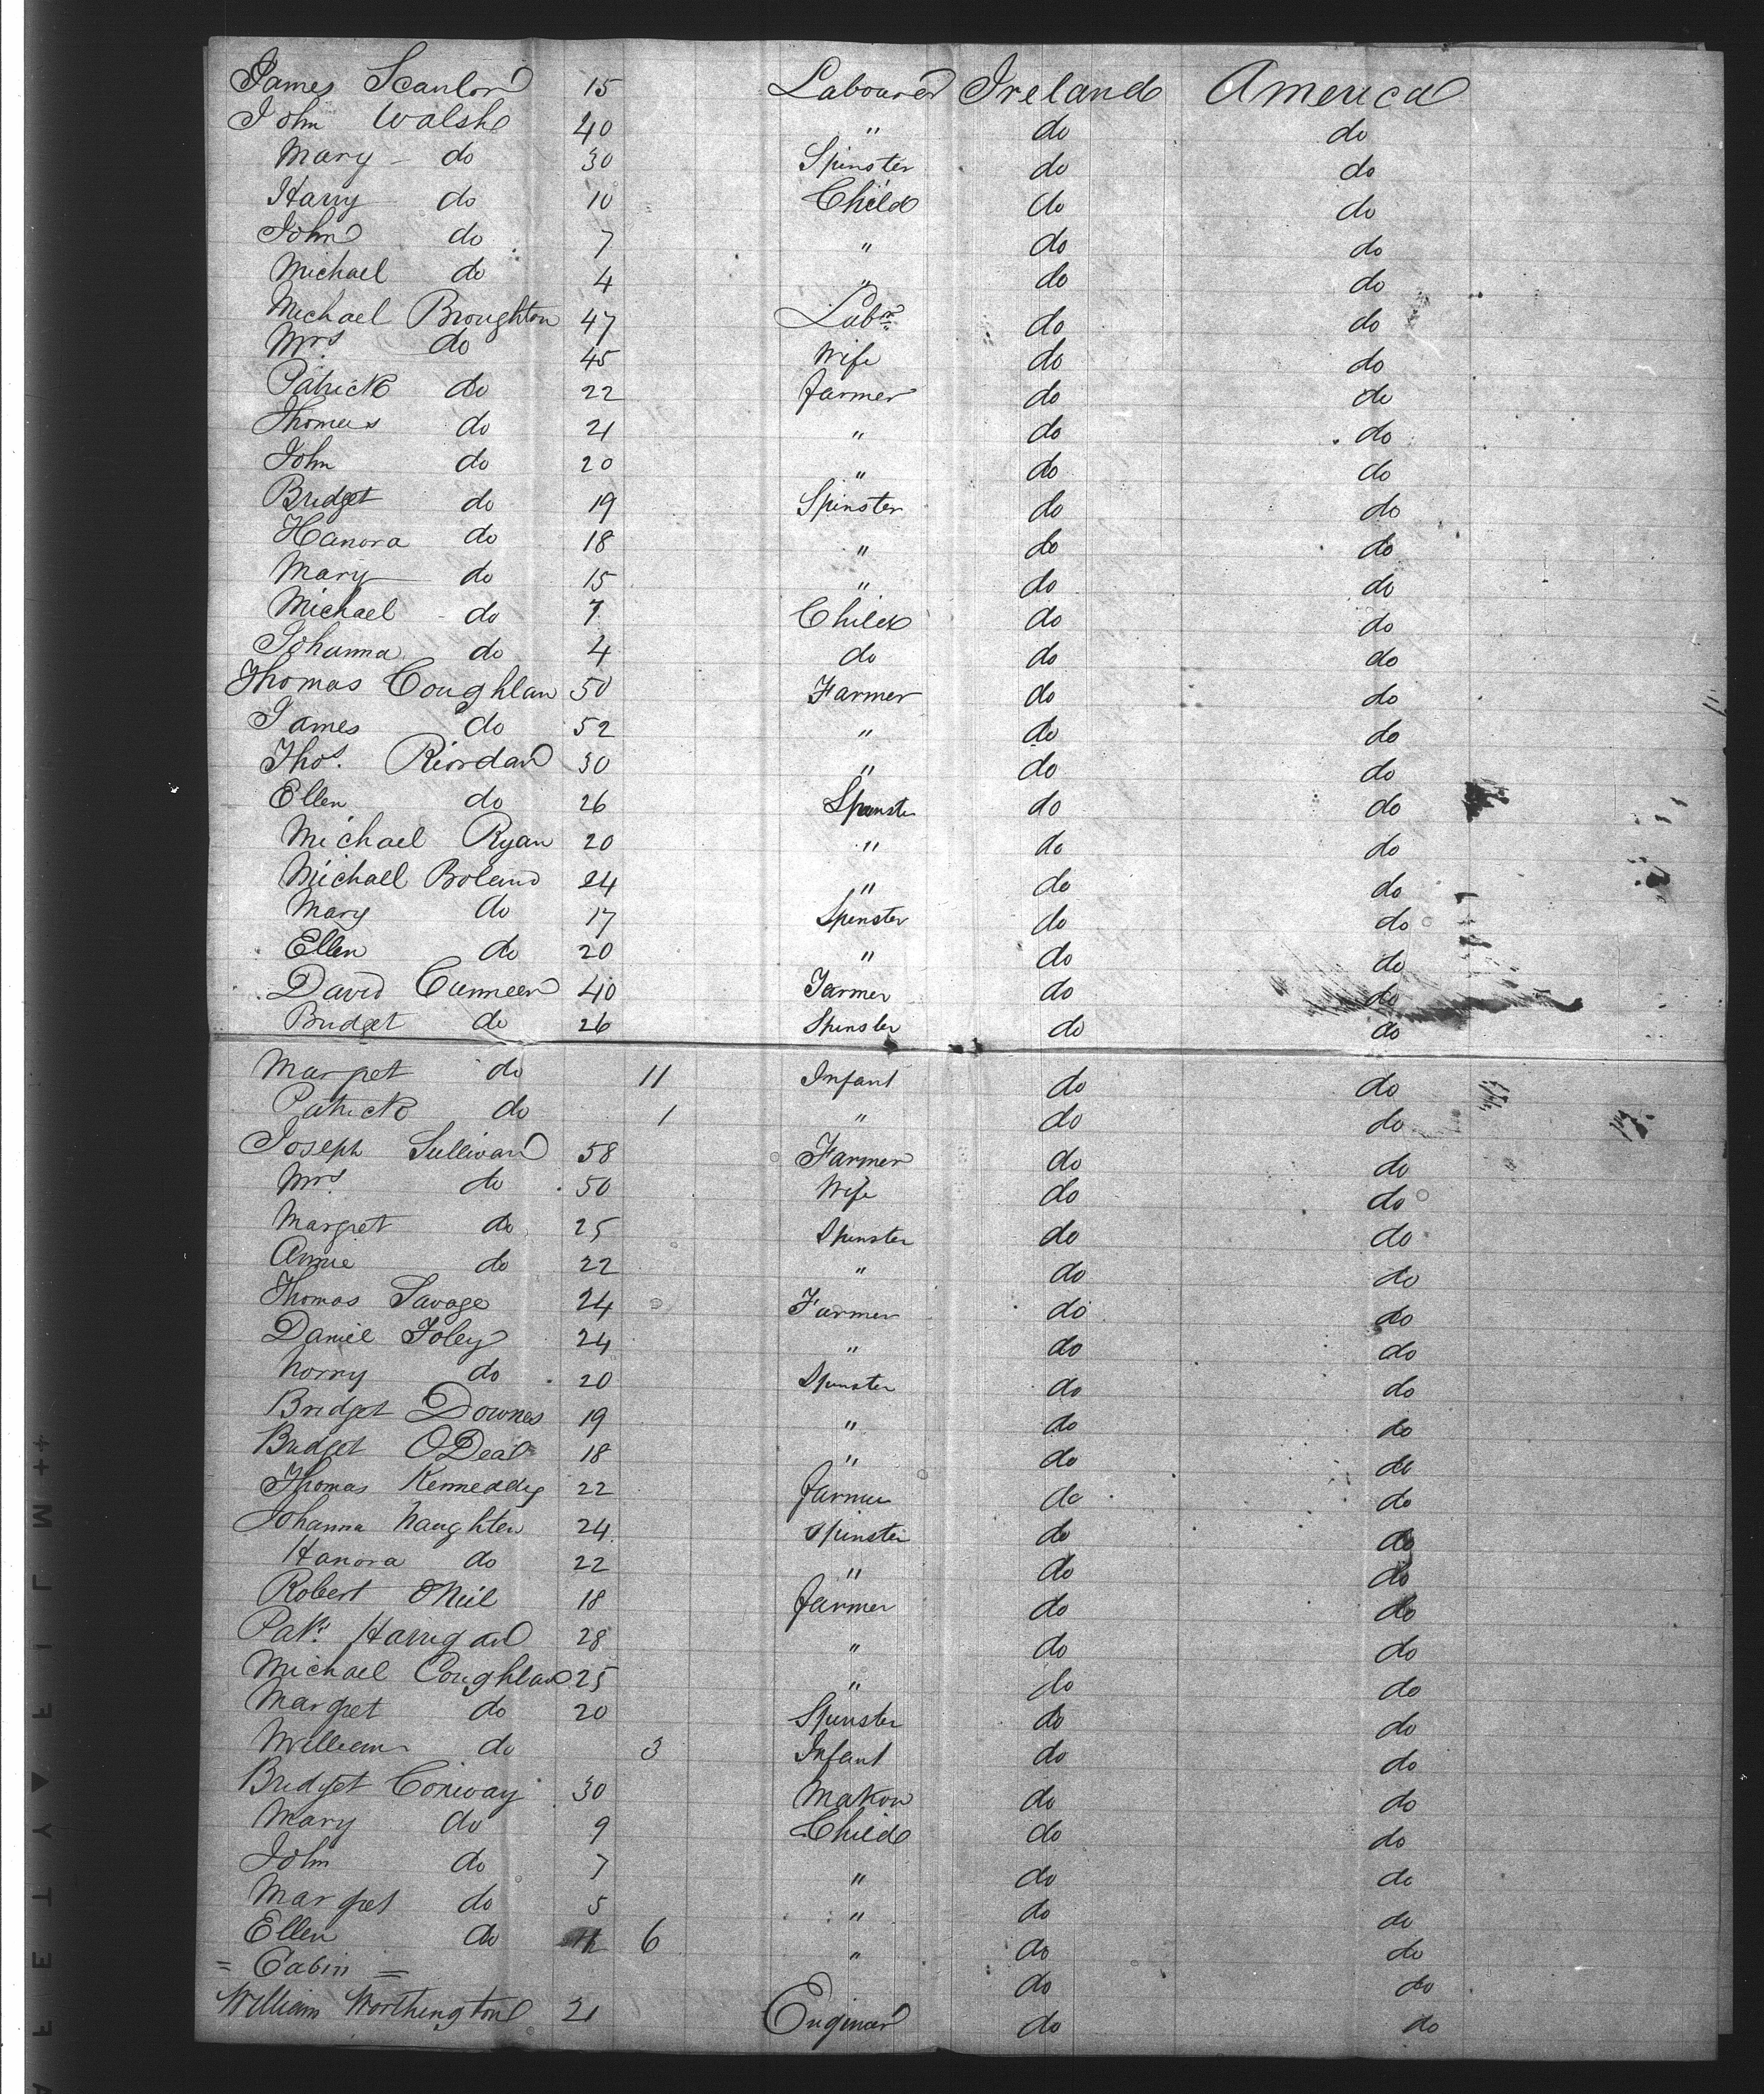 James Scanlon 15 Labourer Ireland America
John Walsh 40 " do do
Mary do 30 Spinster do do
Harry do 10 Child do do
John do 7 " do do
Michael do 4 " do do
Michael Broughton 47 Labr do do
Mrs do 45 Wife do do
Patrick do 22 Farmer do do
Thomas do 21 " do do
John do 20 " do do
Bridget do 19 Spinster do do
Hanora do 18 " do do
Mary do 15 " do do
Michael do 7 Child do do
Johanna do 4 do do do
Thomas Coughlan 50 Farmer do do
James do 52 " do do
Thos. Riordan 30 " do do
Ellen do 26 Spinster do do
Michael Ryan 20 " do do
Michael Boland 24 " do do
Mary do 17 Spinster do do
Ellen do 20 " do do
David Cunneen 40 Farmer do do
Bridget do 26 Spinster do do
Margret do 11 Infant do do
Patrick do 1 " do do
Joseph Sullivan 58 Farmer do do
Mrs do 50 Wife do do
Margret do 25 Spinster do do
Annie do 22 " do do
Thomas Savage 24 Farmer do do
Daniel Foley 24 " do do
Norry do 20 Spinster do do
Bridget Downes 19 " do do
Bridget ODea 18 " do do
Thomas Kenneddy 22 Farmer do do
Johanna Naughten 24 Spinster do do
Hanora do 22 " do do
Robert ONeil 18 Farmer do do
Pak. Harrigan 28 " do do
Michael Coughlan 25 " do do
Margret do 20 Spinster do do
William do 3 Infant do do
Bridget Conway 30 Matron do do
Mary do 9 Child do do
John do 7 " do do
Margret do 5 " do do
Ellen do 6 " do do
= Cabin = do do
William Worthington 21 Enginer do do